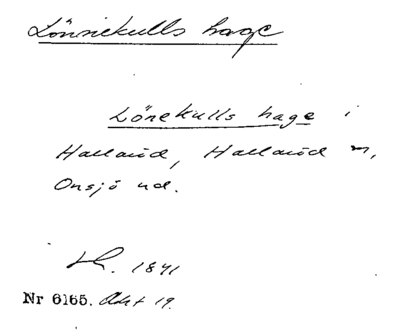 Lönnekulls hage
Lönekulls hage i
Halland, Halland m,
Onsjö hd.
1841
Nr 6165. Akt 19.